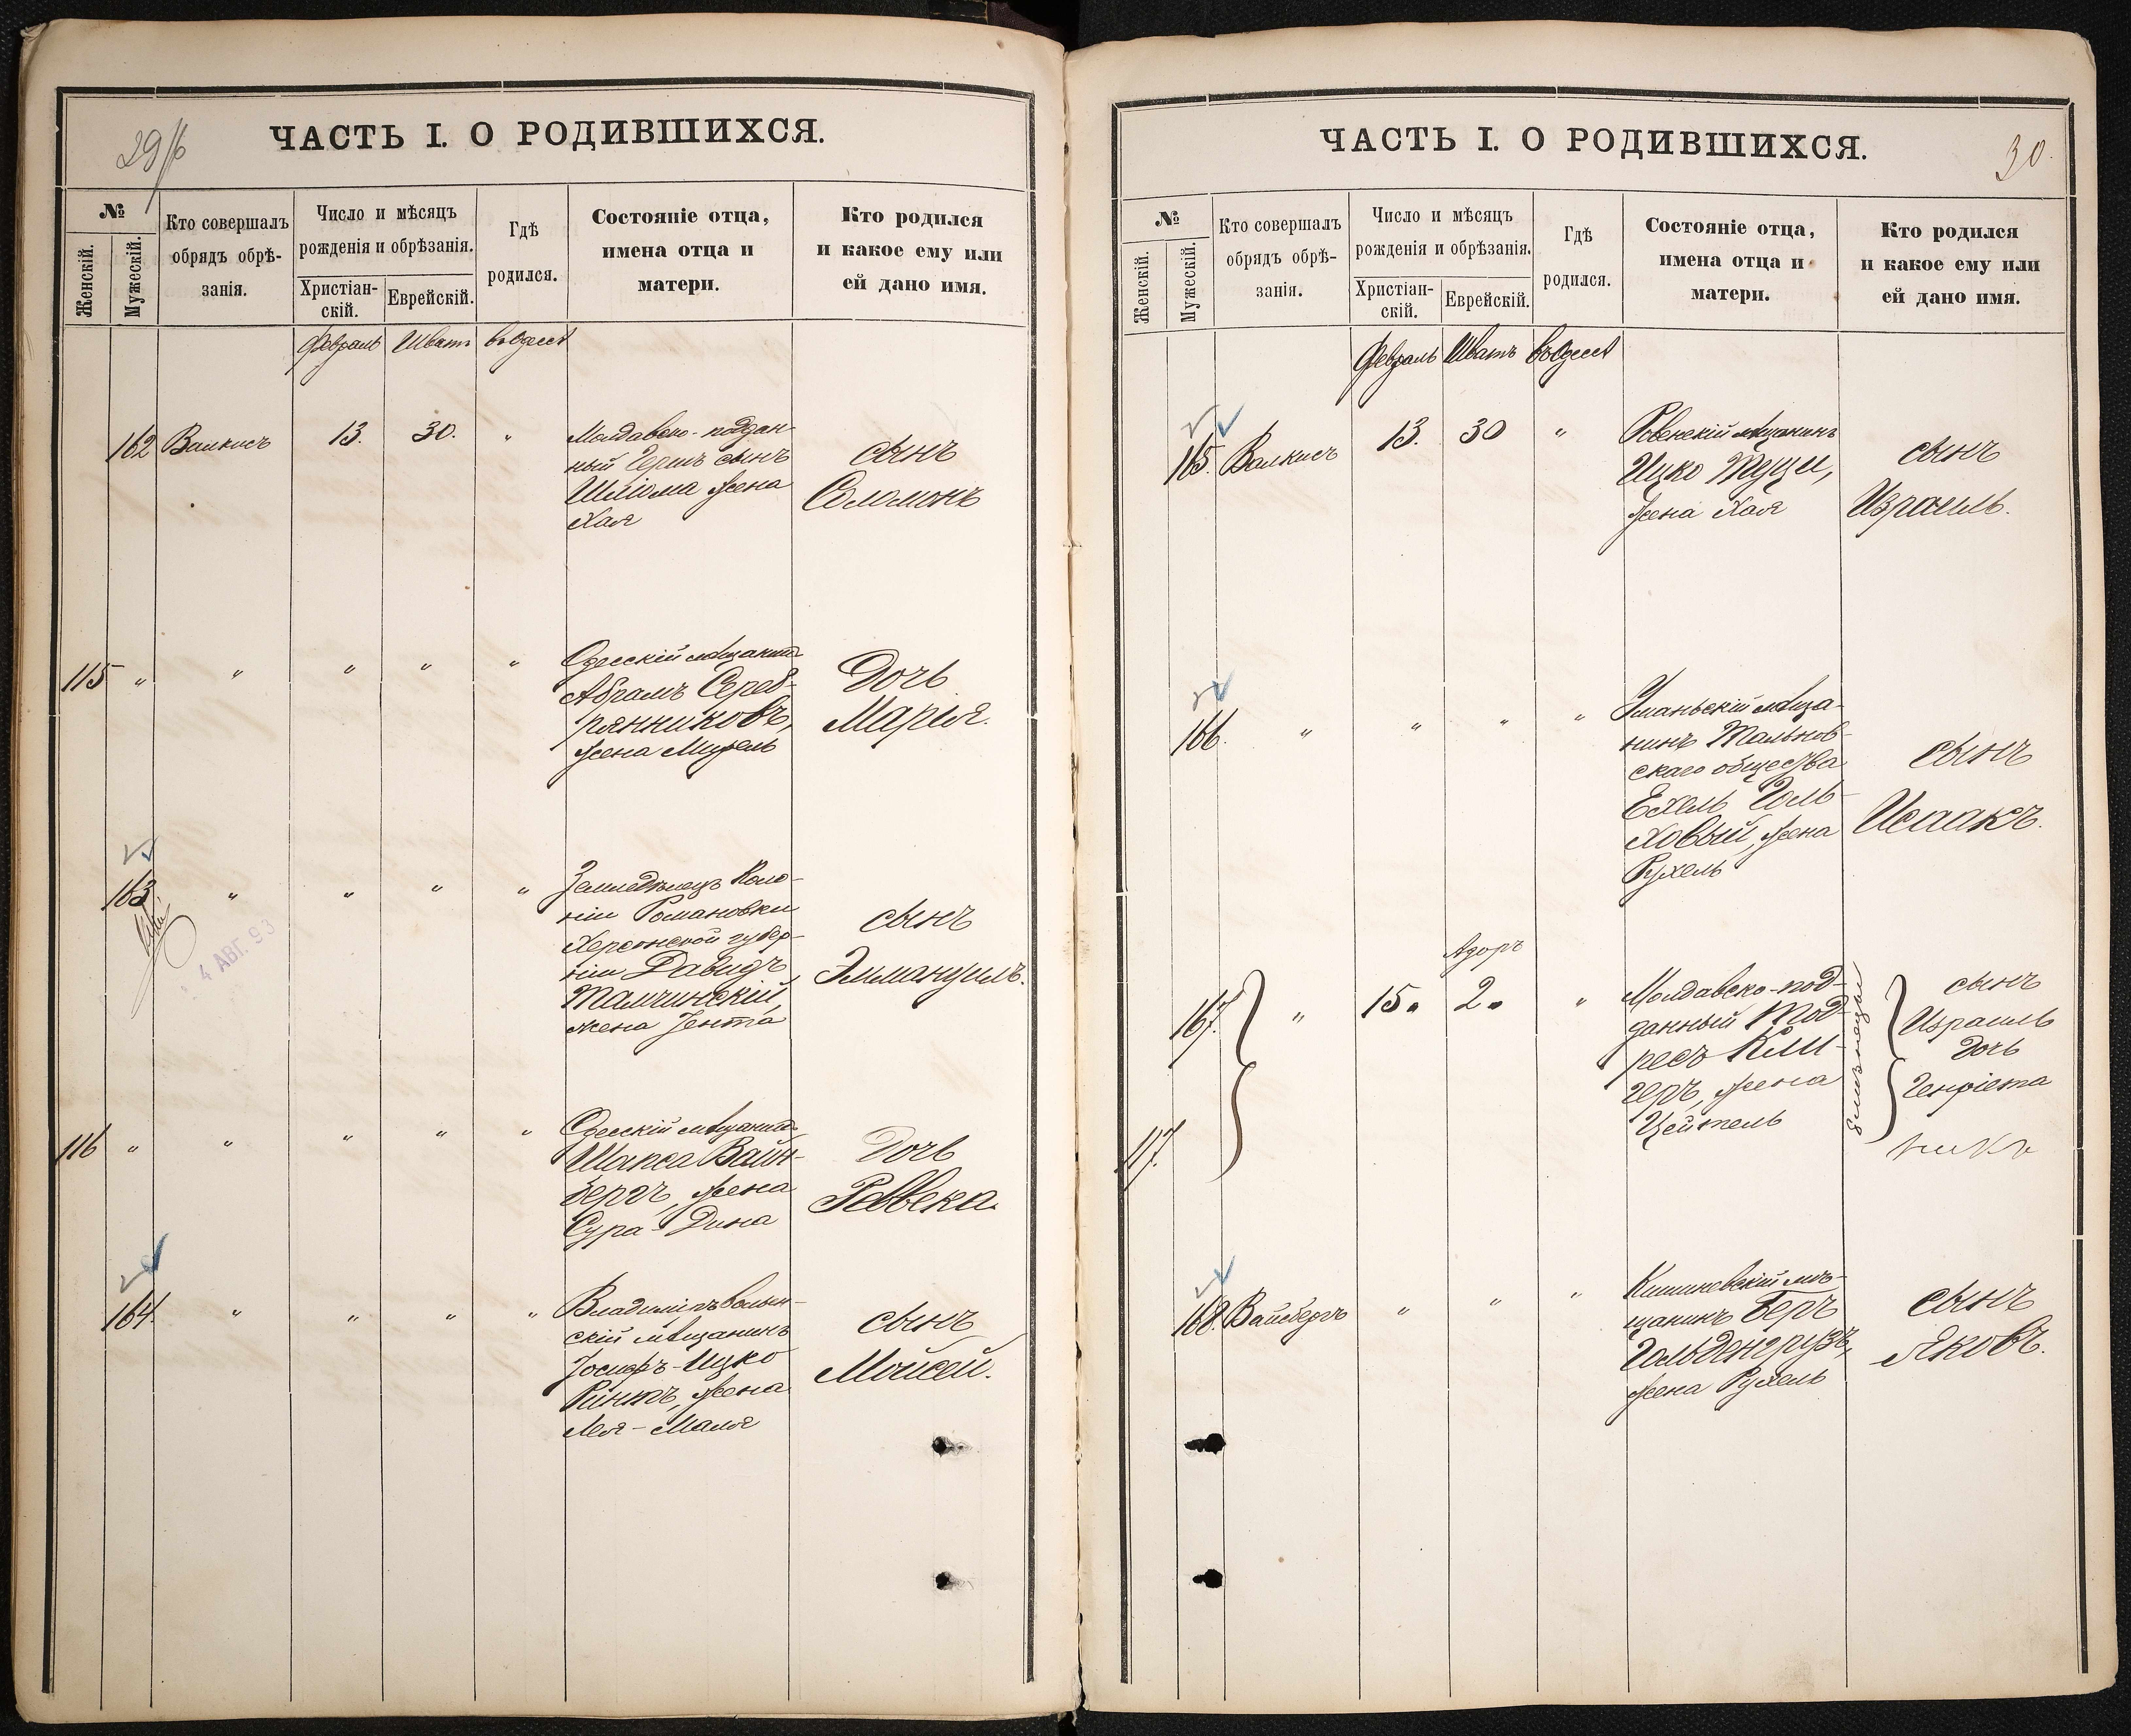 29/б
ЧАСТЬ I. О РОДИВШИХСЯ.
№
Женскій.
Мужескій.
Кто совершалъ
обрядъ обрѣ-
занія.
Число и мѣсяцъ
рожденія и обрѣзанія.
Христіан-
скій.
Еврейскій.
Гдѣ
родился.
Состояніе отца,
имена отца и
матери.
Кто родился
и какое ему или
ей дано имя.
Февраль Шватъ въ Одессѣ
162 Валкисъ 13. 30. "
Молдавско-поддан-
ный Гершъ сынъ
Шліома жена
Хая
сынъ
Соломонъ
115 " " " " "
Одесскій мѣщанинъ
Абрамъ Сереб-
рянниковъ,
жена
Дочь
Марія.
163 " " " "
4 АВГ. 93
Земледѣлецъ Коло-
ніи Романовки
Херсонской губер-
ніи Давидъ
Талчинскій,
жена Іента
сынъ
Эммануилъ.
116 " " " " "
Одесскій мѣщанинъ
Шапса Вайн-
бергъ, жена
Сура-Дина
Дочь
Ревека.
164. " " " "
Владиміръ волын-
скій мѣщанинъ
Іосифъ-Ицко
жена
Лея-Маля
сынъ
Мойсей.
ЧАСТЬ I. О РОДИВШИХСЯ.
30.
№
Женскій.
Мужескій.
Кто совершалъ
обрядъ обрѣ-
занія.
Число и мѣсяцъ
рожденія и обрѣзанія.
Христіан-
скій.
Еврейскій.
Гдѣ
родился.
Состояніе отца,
имена отца и
матери.
Кто родился
и какое ему или
ей дано имя.
Февраль Шватъ въ Одессѣ
165. Валкисъ 13. 30 "
Ровенскій мѣщанинъ
Ицко
жена Хая
сынъ
Израиль.
166. " " " "
Уманьскій мѣща-
нинъ Тальнов-
скаго общества
Ехель Голь-
ховый, жена
Рухель
сынъ
Исаакъ.
Адоръ
167. " 15. 2. "
117.
Молдавско-под-
данный Мод-
ресъ Кли-
геръ, жена
Цейтель
близнецы
сынъ
Израиль
Дочь
Генріета
168. Вайсбергъ " " "
Кишиневскій мѣ-
щанинъ Беръ
Гольденгрузъ,
жена Рухель
сынъ
Яковъ.